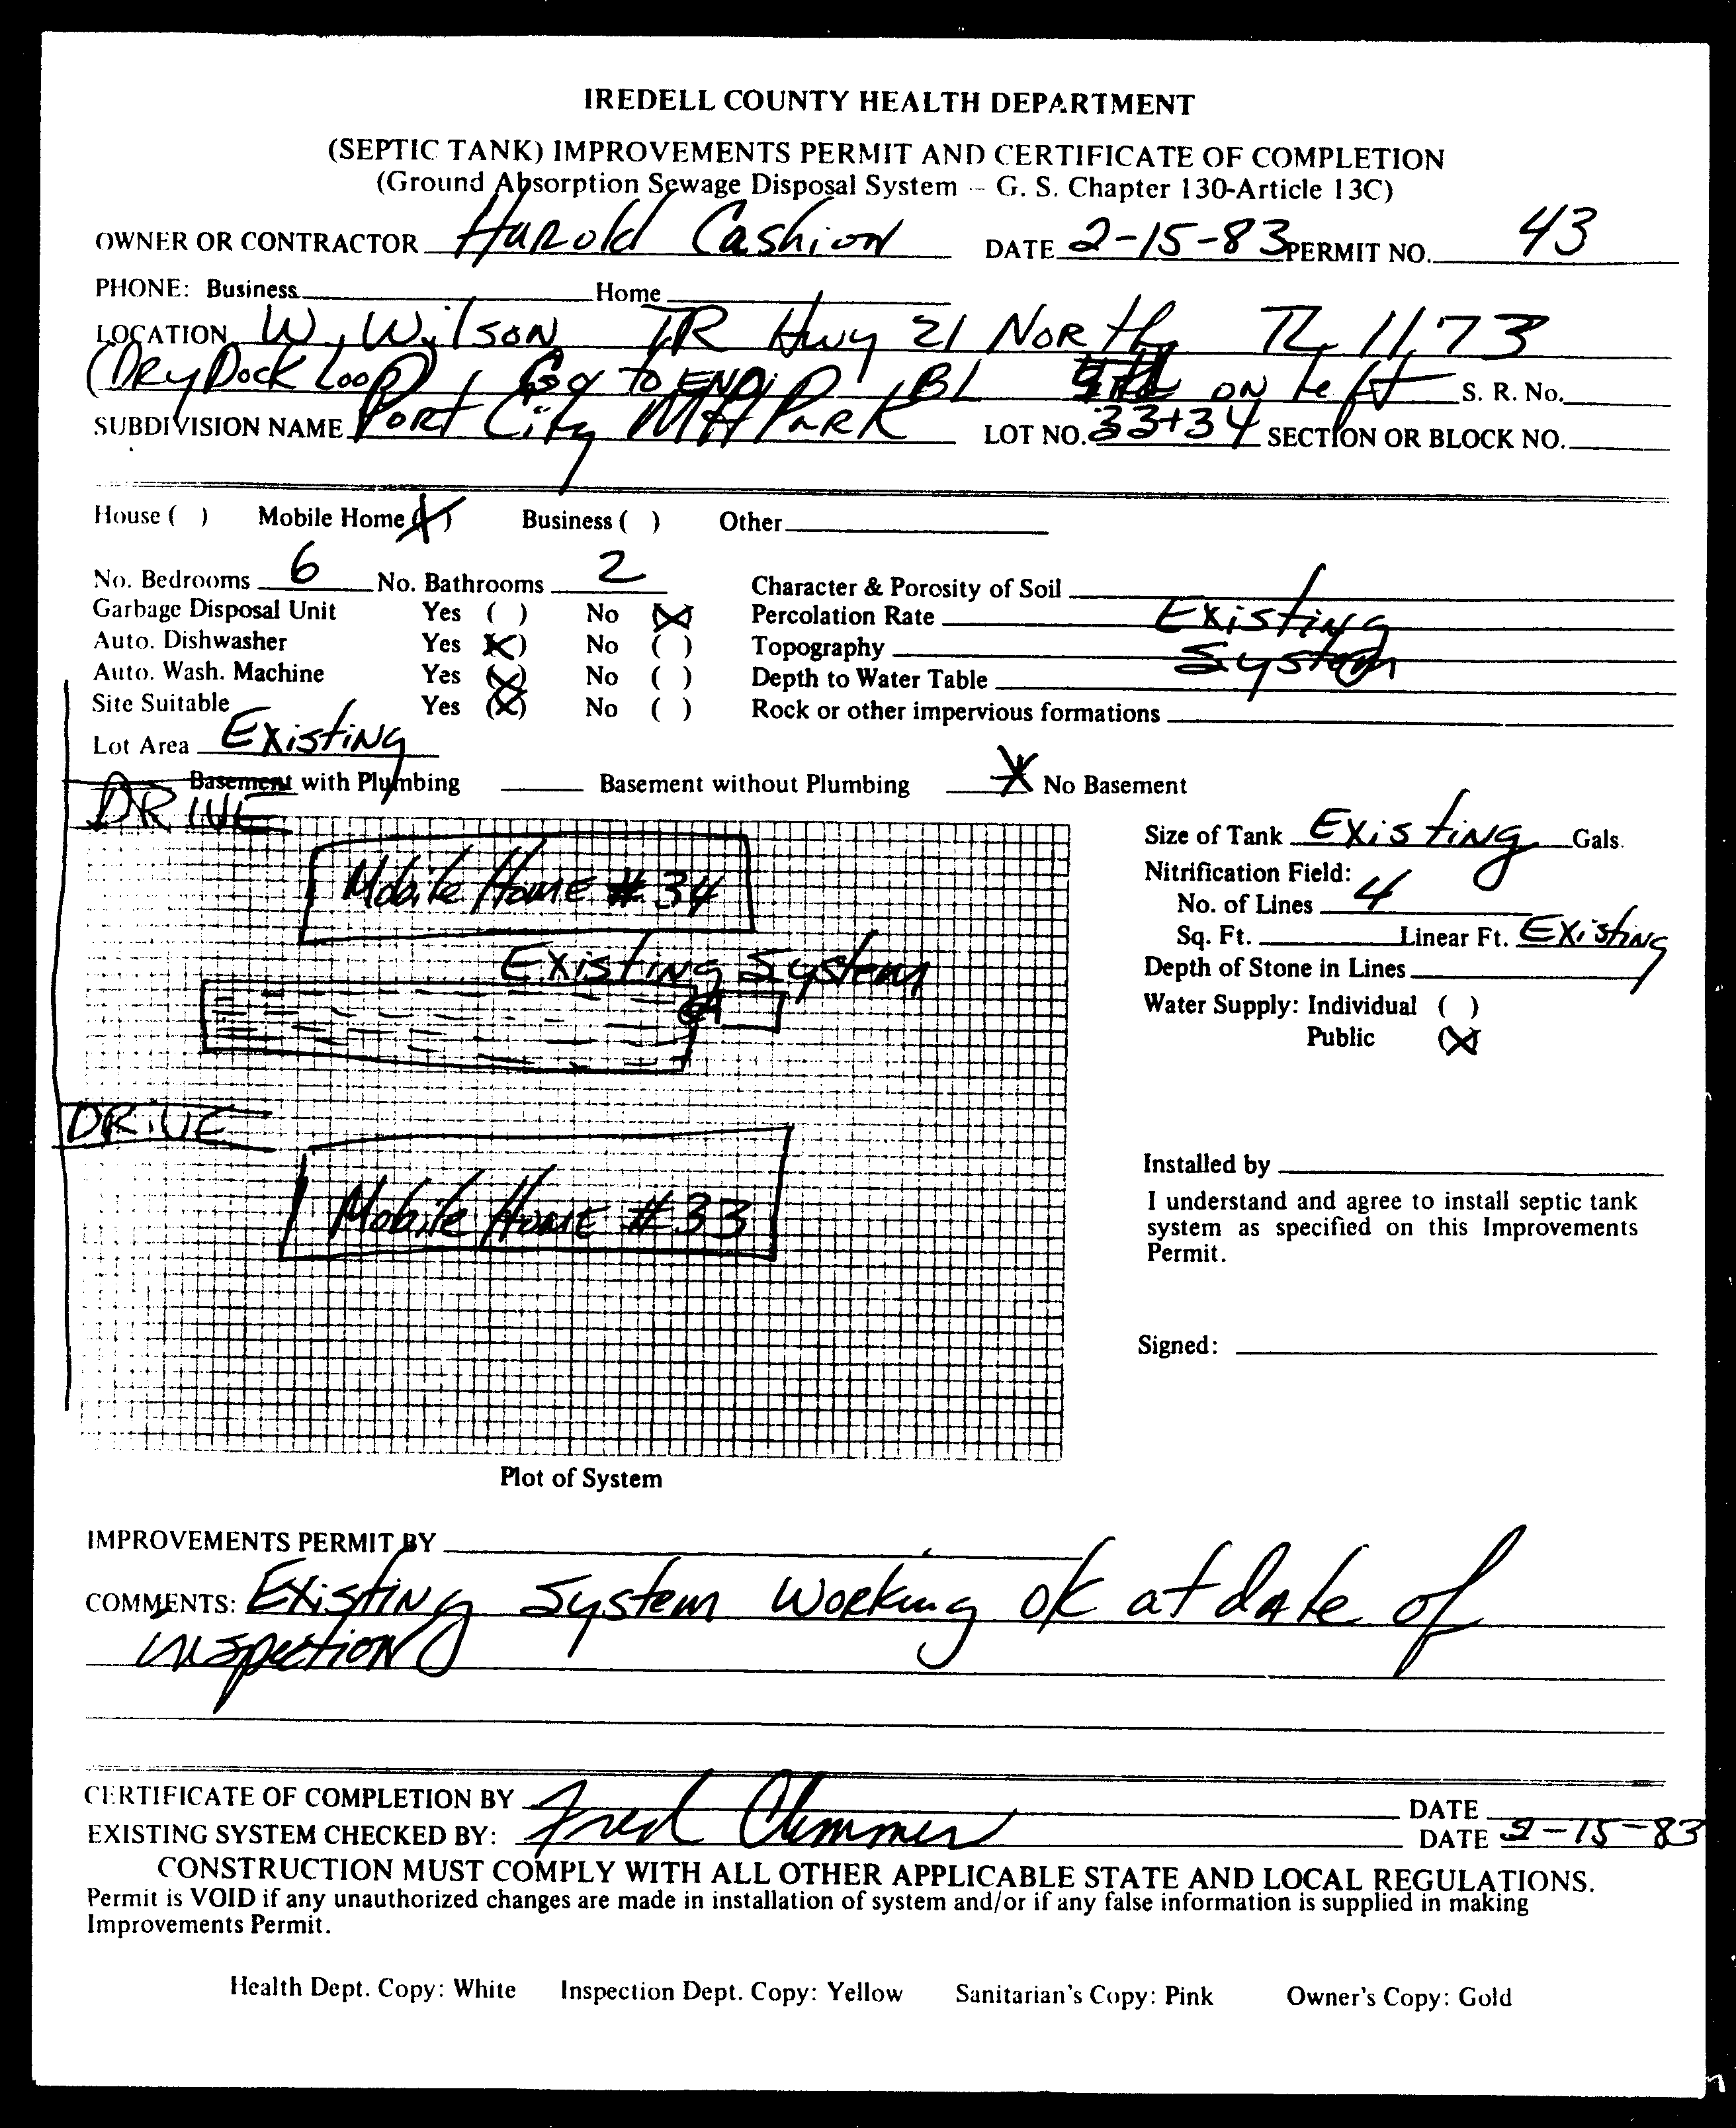 IREDELL COUNTY HEALTH DEPARTMENT
(SEPTIC TANK) IMPROVEMENTS PERMIT AND CERTIFICATE OF COMPLETION
(Ground Absorption Sewage Disposal System -- G. S. Chapter 130-Article 13C)
OWNER OR CONTRACTOR Harold Cashion DATE 2-15-83 PERMIT NO. 43
PHONE: Business Home
LOCATION W. Wilson TR Hwy 21 North TL 1173
(Dry Dock Loop) Go to END BL on left S. R. No.
SUBDIVISION NAME Port City MH Park LOT NO. 33+34 SECTION OR BLOCK NO.
House ( ) Mobile Home (X) Business ( ) Other
No. Bedrooms 6 No. Bathrooms 2 Character & Porosity of Soil
Garbage Disposal Unit Yes ( ) No (X) Percolation Rate Existing
Auto. Dishwasher Yes (X) No ( ) Topography System
Auto. Wash. Machine Yes (X) No ( ) Depth to Water Table
Site Suitable Yes (X) No ( ) Rock or other impervious formations
Lot Area Existing
Basement with Plumbing Basement without Plumbing X No Basement
DRIVE
Mobile Home # 34
Existing System
DRIVE
Mobile Home # 33
Plot of System
Size of Tank Existing Gals.
Nitrification Field:
No. of Lines 4
Sq. Ft. Linear Ft. Existing
Depth of Stone in Lines
Water Supply: Individual ( )
Public (X)
Installed by
I understand and agree to install septic tank
system as specified on this Improvements
Permit.
Signed:
IMPROVEMENTS PERMIT BY
COMMENTS: Existing System Working OK at date of
inspection
CERTIFICATE OF COMPLETION BY DATE
EXISTING SYSTEM CHECKED BY: Fred Clemmer DATE 2-15-83
CONSTRUCTION MUST COMPLY WITH ALL OTHER APPLICABLE STATE AND LOCAL REGULATIONS.
Permit is VOID if any unauthorized changes are made in installation of system and/or if any false information is supplied in making
Improvements Permit.
Health Dept. Copy: White Inspection Dept. Copy: Yellow Sanitarian's Copy: Pink Owner's Copy: Gold